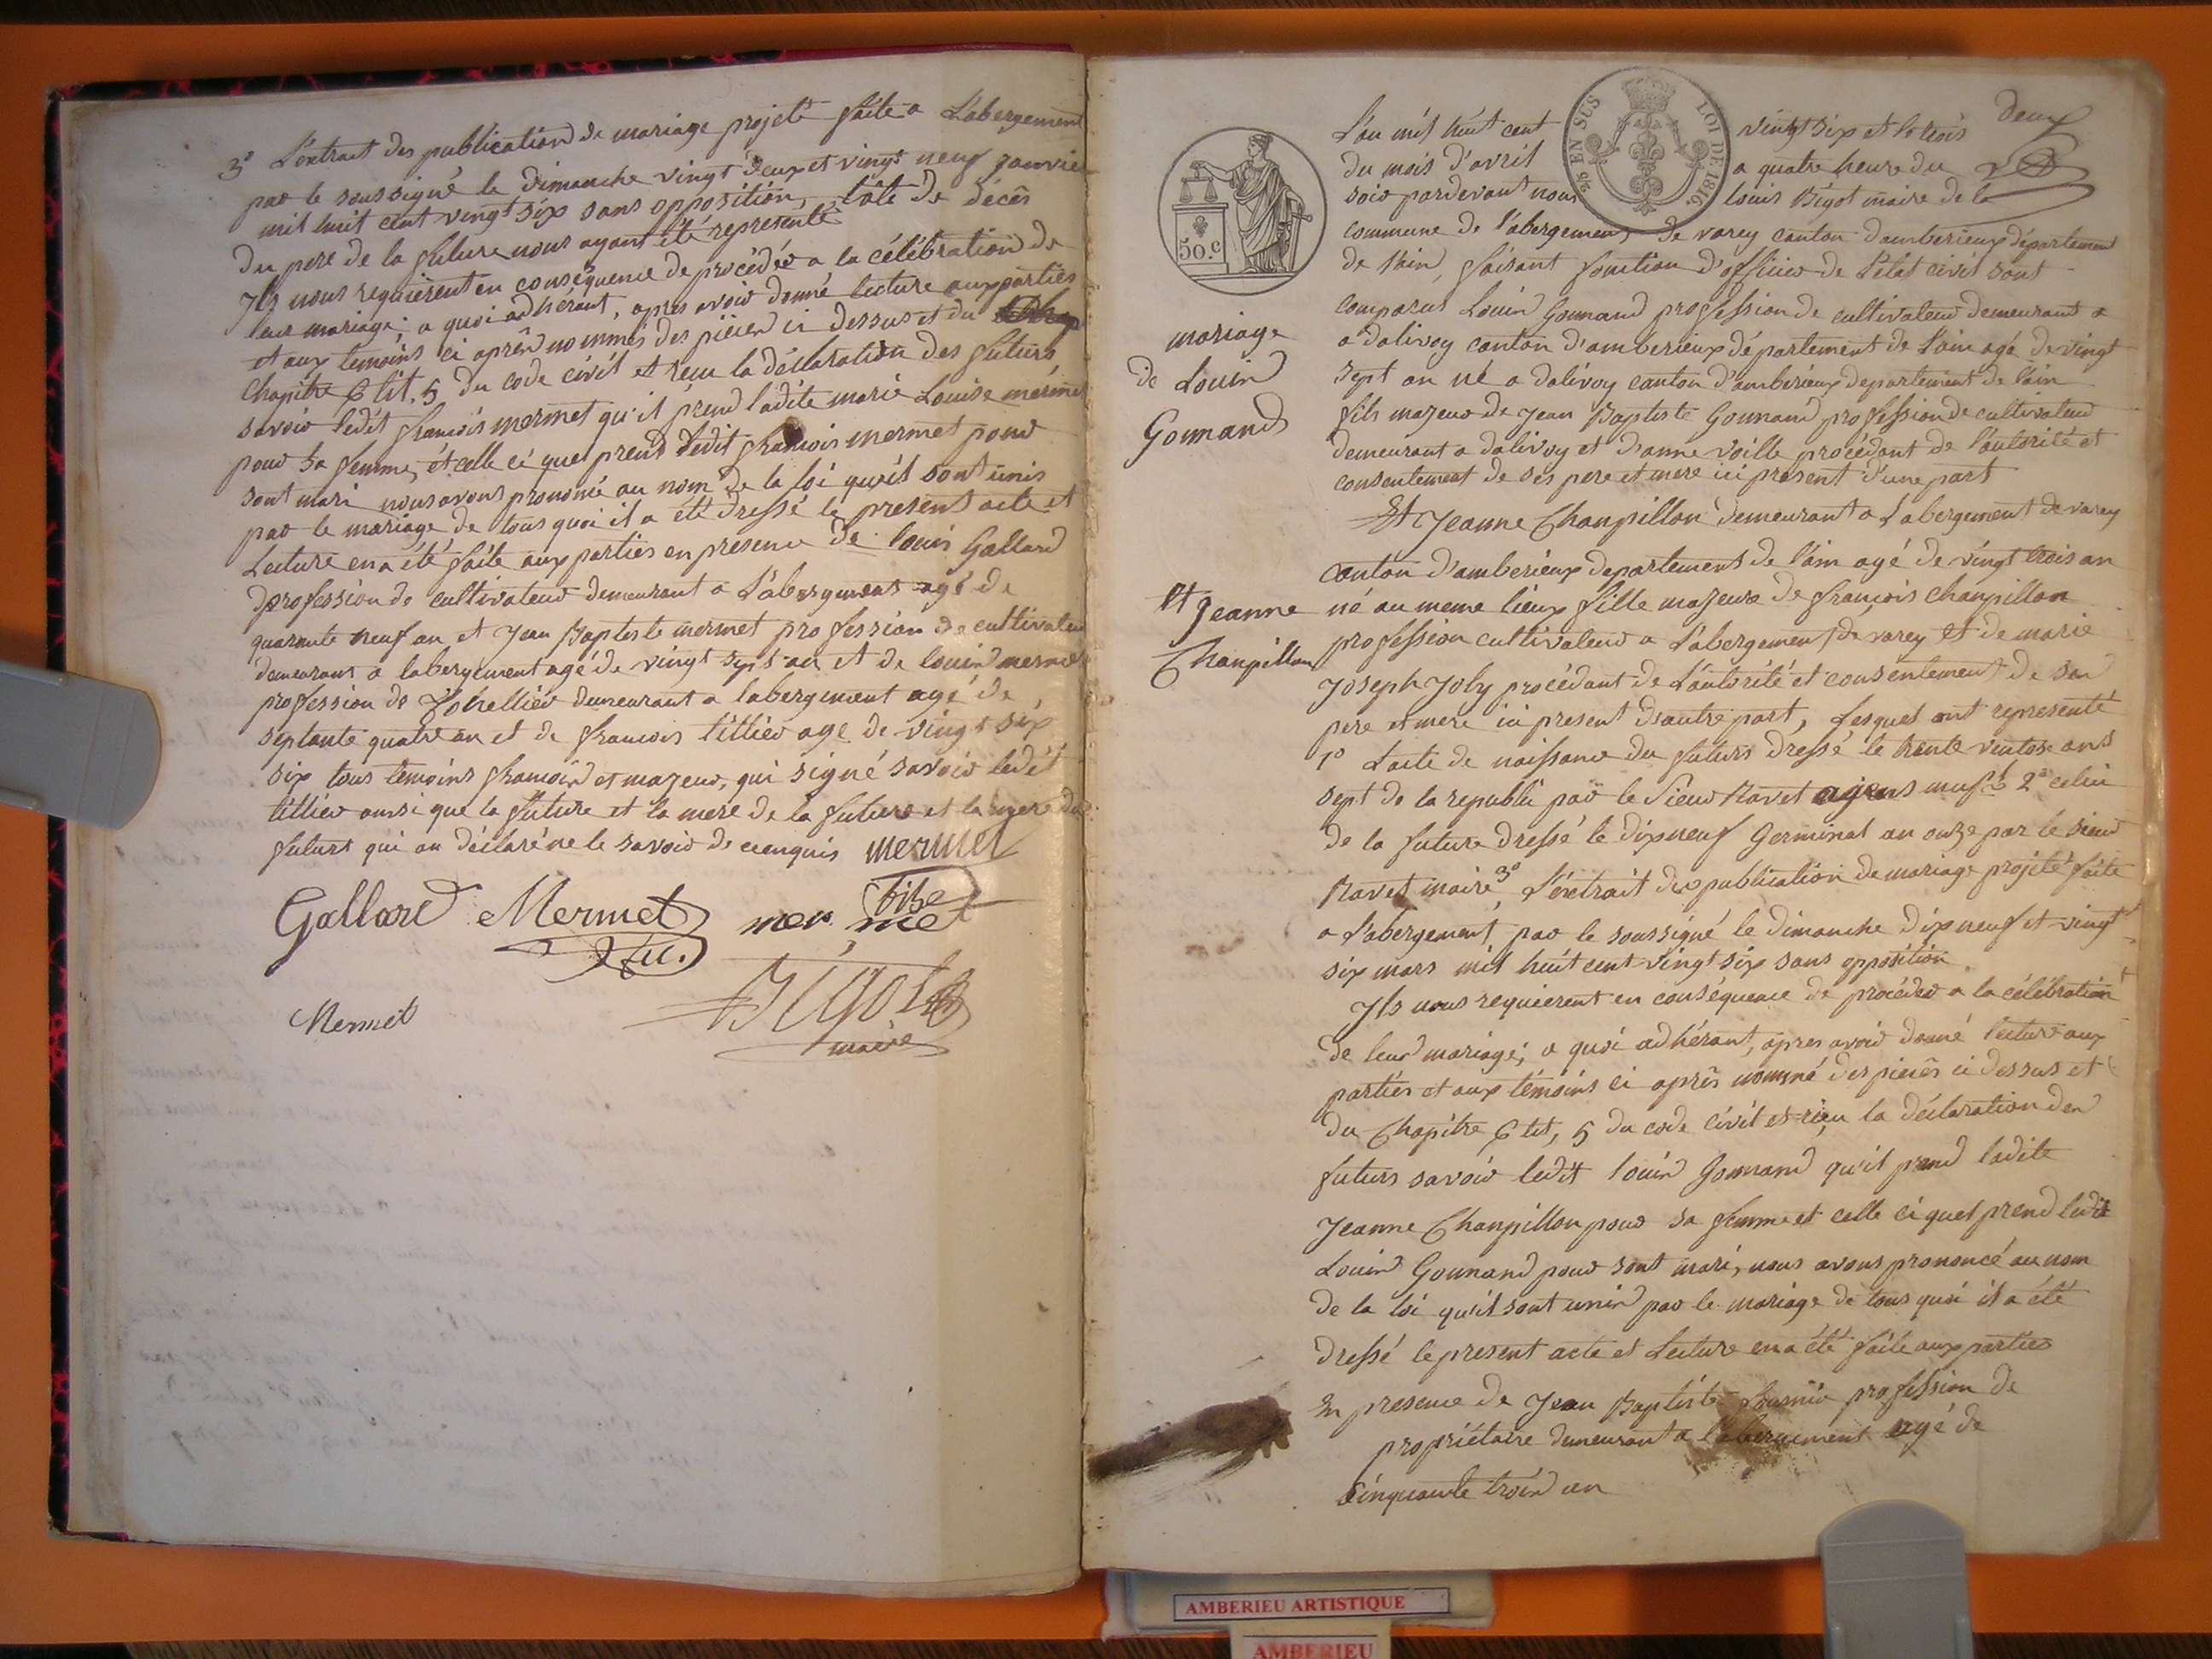 3° L'extrait des publication de mariage projeté faite a L'abergement
par le soussigné le dimanche vingt deux et vingt neuf janvie
mil huit cent vingt six sans opposition, l'ate de décès
du pere de la future nous ayant été representé
Ils nous requierent en conséquence de procédér a la célébration de
leur mariage; a quoi adhérant, apres avoir donné lecture aux parties
et aux temoins ci aprés nommés des piéces ci dessus et du
Chapitre 6 tit. 5 du code civil et reçu la déclaration des futurs
savoir ledit francois mermet qu'il prend ladite marie Louise merme
pour sa femme, et celle ci quel prend ledit francois mermet pour
sont mari nous avons prononcé au nom de la loi qu'il sont unis
par le mariage de tous quoi il a été dressé le present acte et
Lecture en a été faite aux parties en presence de louis Gallard
profession de cultivateur demeurant a L'abergement agé de
quarante neuf an et Jean Baptiste mermet profession de cultivateu
demeurans a labergement agé de vingt sept an et de louis merme
profession de demeurant a labergement agé de
septante quatre an et de francois tillier age de vingt six
six tous temoins francois et majeur, qui signé savoir ledit
tillier aussi que la future et la mere de la future et la mere du
futurs qui on déclaré ne le savoir de ce enquis mermet
fils
Gallard Mermet mer met
Mermet
Bigot
maire
deux
L'an mil huit cent vingt six et le trois
du mois d'avril a quatre heure du
soir pardevant nous louis Bigot maire de la
commune de l'abergement de varey canton d'amberieux département
de l'ain, faisant fonction d'officier de l'état civil sont
comparus Louis Gonnand profession de cultivateur demeurant a
a dalivoy canton d'amberieux département de l'ain agé de vingt
sept an né a dalivoy canton d'amberieux departement de l'ain
fils majeur de Jean Baptiste Gonnand profession de cultivateur
demeurant a dalivoy et d'anne voille procédant de l'autorité et
consentement de ses pere et mere ici présent d'une part
Et Jeanne Chanpillon demeurant a Labergement de varey
canton d'amberieux departement de l'ain agé de vingt trois an
né au meme lieux fille majeure de françois chanpillon
profession cultivateur a L'abergement de varey et de marie
Joseph Joly procédant de L'autorité et consentement de ses
pere et mere ici present d'autre part, Lesquel ont representé
1° Lacte de naissance du futurs dressé le trente ventose ans
sept de la republi par le Sieur Ravet agens mup.l 2° celui
de la future dressé le dix neuf Germinal an onze par le sieur
Ravet maire 3° L'extrait des publication de mariage projeté faite
a l'abergement, par le soussigné le dimanche dix neuf et vingt
six mars mil huit cent vingt six sans opposition
Ils nous requierent en conséquence de procéder a la célébration
de leur mariage; a quoi adhérant, apres avoir donné lecture aux
parties et aux témoins ci aprés nommé des pieces ci dessus et
du Chapitre 6 tit, 5 du code civil et reçu la déclaration des
futurs savoir ledit louis Gonnand qu'il prend ladite
Jeanne Chanpillon pour sa femme et celle ci quel prend ledit
Louis Gonnand pour sont mari, nous avons prononcé au nom
de la loi qu'il sont unis par le mariage de tous quoi il a été
dressé le present acte et Lecture en a été faite aux parties
En presence de Jean Baptiste profession de
propriétaire demeurant a l'abergement agé de
cinquante trois an
mariage
de Louis
Gonnand
et Jeanne
Chanpillon
50.c
EN SUS
LOI DE 1816
AMBERIEU ARTISTIQUE
AMBERIEU